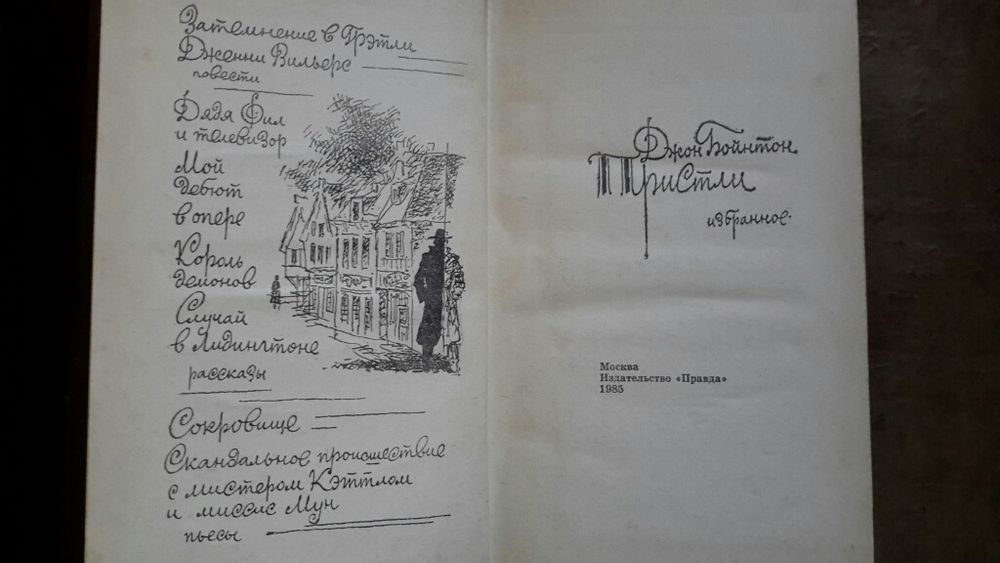 Затемнение в Грэтли
Дженни Вильерс
повести
Дядя Фил
и телевизор
Мой
дебют
в опере
Король
демонов
Случай
в Лидингтоне
рассказы
Сокровище
Скандальное происшествие
с мистером Кэттлом
и миссис Мун
пьесы
Джон Бойнтон
Пристли
избранное
Москва
Издательство «Правда»
1985